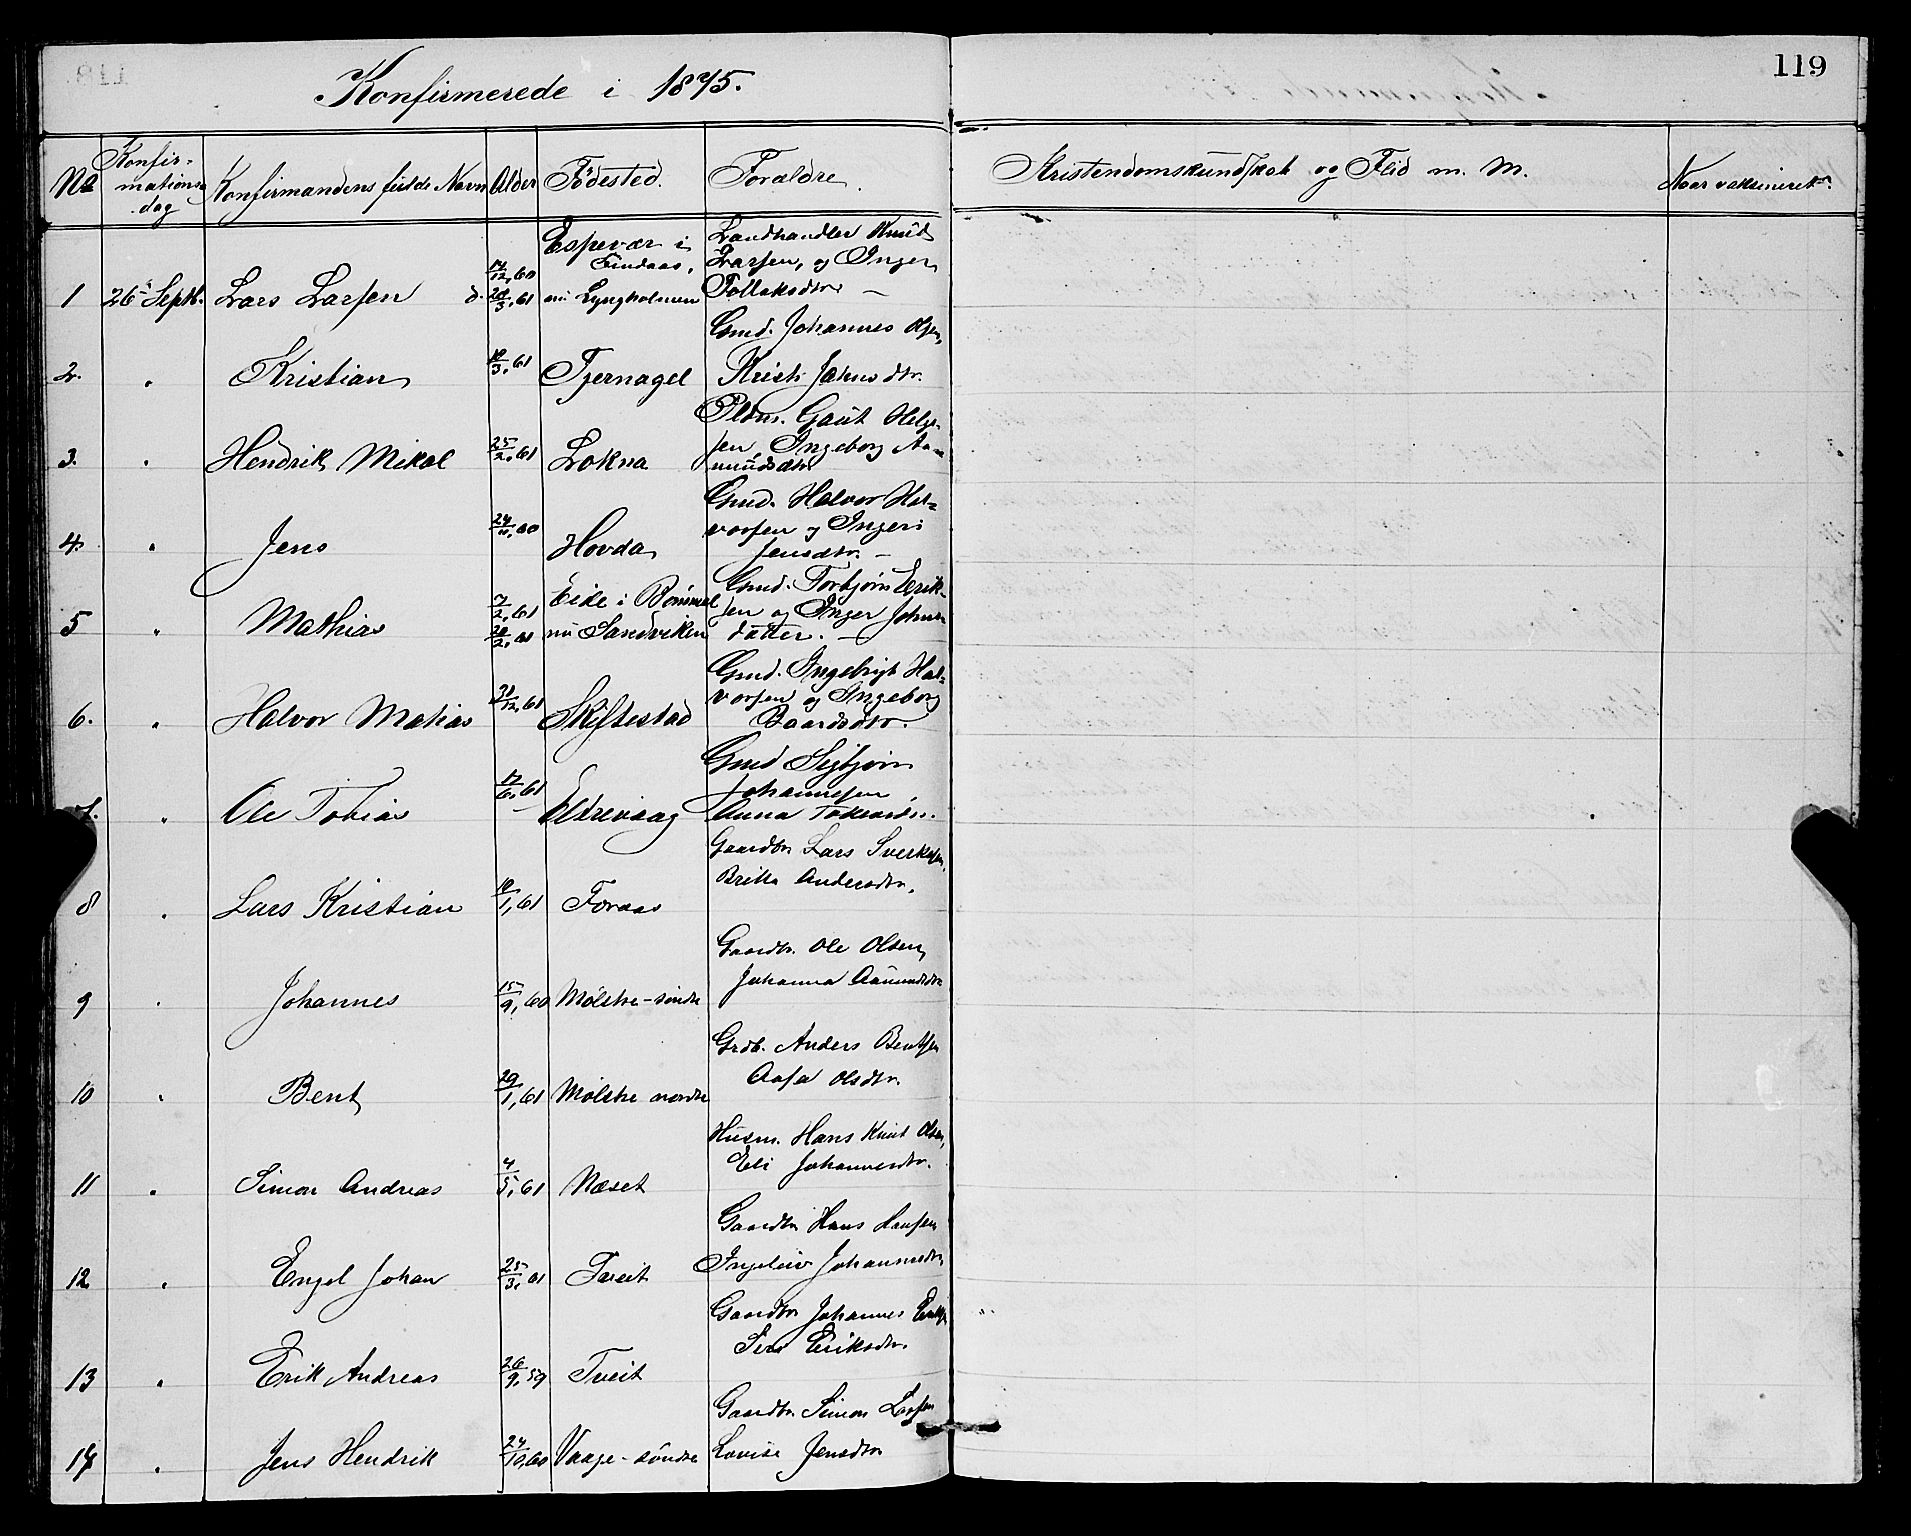 119
Konfirmerede i 1875.
No
Konfir-
mations
dag
Konfirmandens fulde Navn
Alder
Födested.
Foraldre.
Kristendomskundskab og Flid m. M.
Naar vaksineret.
1 26 Septb. Lars Larsen
Espevær i
Findaas,
nu Lyngholmen
Landhandler Knud
Larsen, og Inger
Tollaksdtr
2. " Kristian 3, 61 Tjernagel
Gmd. Johannes Olsen,
Kristi Johnsdtr.
3. " Hendrik Mikal 25/2, 61 Lokna
Gaut Helge-
sen, Ingeborg Aa-
mundsdtr
4. " Jens 24/11, 60 Hovda
Gmd. Halvor Hal-
vorsen og Inger
Jensdtr. —
5 " Mathias 7/2, 61
Eide i Bømmel
nu Sandviken
Gmd. Torbjørn Erik-
sen og Inger Johns
datter. —
6. " Halvor Matias 12, 61 Skiftestad
Gmd. Ingebrigt Hal-
vorsen og Ingeborg
Baardsdtr.
7. " Ole Tobias 17/6, 61 Eltrevaag
Gmd Sigbjørn
Johannesen,
Anna
8 " Lars Kristian 1, 61 Foraas
Gaardbr Lars Sverkesen,
Britta Andersdtr.
9 " Johannes 15/9, 60 Mølstre-søndre
Gaardbr. Ole Olsen,
Johanna Aamundsdtr
10 " Bent 29/1, 61 Mølstre nordre
Grdb. Anders Bentsen
Aasa Olsdtr.
11 " Simon Andreas 4/5, 61 Næset
Husm. Hans Knut Olsen,
Eli Johannesdtr.
12 " Engel Johan 25/3, 61 Tveit
Gaardbr Hans Hansen
Ingeleiv Johannesdtr
13 " Erik Andreas 26/9, 59 Tveit
Gaardbr Johannes Eriksen
Siri Eriksdtr.
14 " Jens Hendrik 24/10, 60 Vaage-søndre
Gaardbr Simon Larsen
Lovise Jensdtr